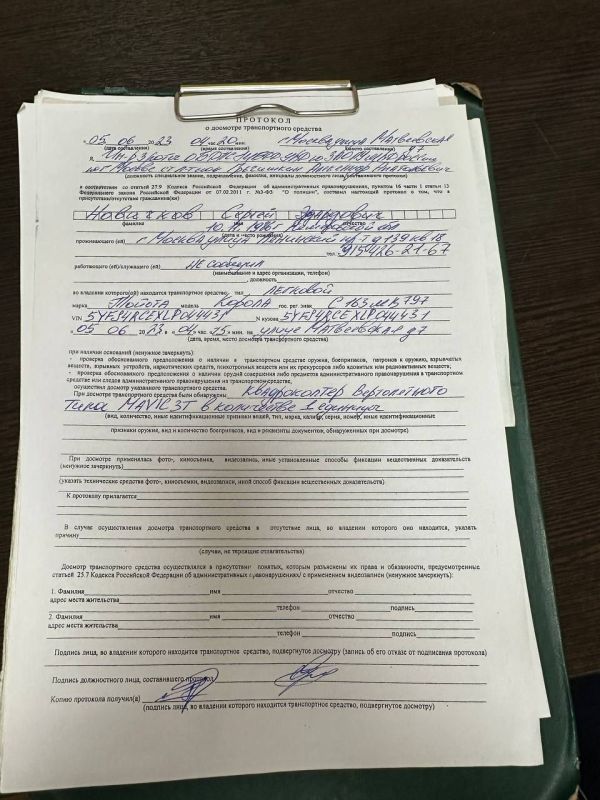 ПРОТОКОЛ
о досмотре транспортного средства
« 05 06 20 23 04 час. 20 мин. г Москва улица Матвеевская
(дата составления) (время составления) (место составления) д7
(должность, специальное звание, подразделение, фамилия, инициалы должностного лица, составившего протокол)
в соответствии со статьей 27.9 Кодекса Российской Федерации об административных правонарушениях, пунктом 16 части 1 статьи 13
Федерального закона Российской Федерации от 07.02.2011 г. №3-ФЗ "О полиции", составил настоящий протокол о том, что в
присутствии/отсутствии гражданина(ки)
Сергей
фамилия имя отчество
(дата и место рождения)
проживающего (ей) г Москва улица д 139 кв 18
тел. 915-426-21-67
работающего (ей)/служащего (ей) не сообщил
(наименование и адрес организации, телефон)
, должность
во владении которого(ой) находится транспортное средство, тип легковой
марка Тойота модель Корола гос. рег. знак С 163 МК 797
VIN 5YFS4RCEXLP044431 N кузова 5YFS4RCEXLP044431
« 05 06 20 23 « 04 час. 25 мин. на улице Матвеевская д7
(дата, время, место досмотра транспортного средства)
при наличии оснований (ненужное зачеркнуть):
- проверка обоснованного предположения о наличии в транспортном средстве оружия, боеприпасов, патронов к оружию, взрывчатых
веществ, взрывных устройств, наркотических средств, психотропных веществ или их прекурсоров либо ядовитых или радиоактивных веществ;
- проверка обоснованного предположения о наличии орудий совершения либо предметов административного правонарушения в транспортном
средстве или следов административного правонарушения на транспортном средстве,
осуществил досмотр указанного транспортного средства.
При досмотре транспортного средства были обнаружены Квадрокоптер Вертолетного
типа MAVIC 3T в количестве 1 единицы
(вид, количество, иные идентификационные признаки вещей, тип, марка, калибр, серия, номер, иные идентификационные
признаки оружия, вид и количество боеприпасов, вид и реквизиты документов, обнаруженных при досмотре)
При досмотре применялась фото-, киносъемка, видеозапись, иные установленные способы фиксации вещественных доказательств
(ненужное зачеркнуть)
(указать технические средства фото-, киносъемки, видеозаписи, иной способ фиксации вещественных доказательств)
К протоколу прилагается
В случае осуществления досмотра транспортного средства в отсутствие лица, во владении которого оно находится, указать
причину
(случаи, не терпящие отлагательства)
Досмотр транспортного средства осуществлялся в присутствии понятых, которым разъяснены их права и обязанности, предусмотренные
статьей 25.7 Кодекса Российской Федерации об административных правонарушениях/ с применением видеозаписи (ненужное зачеркнуть):
1. Фамилия имя отчество
адрес места жительства
телефон подпись
2. Фамилия имя отчество
адрес места жительства
телефон подпись
Подпись лица, во владении которого находится транспортное средство, подвергнутое досмотру (запись об его отказе от подписания протокола)
Подпись должностного лица, составившего протокол
Копию протокола получил(а)
(подпись лица, во владении которого находится транспортное средство, подвергнутое досмотру)